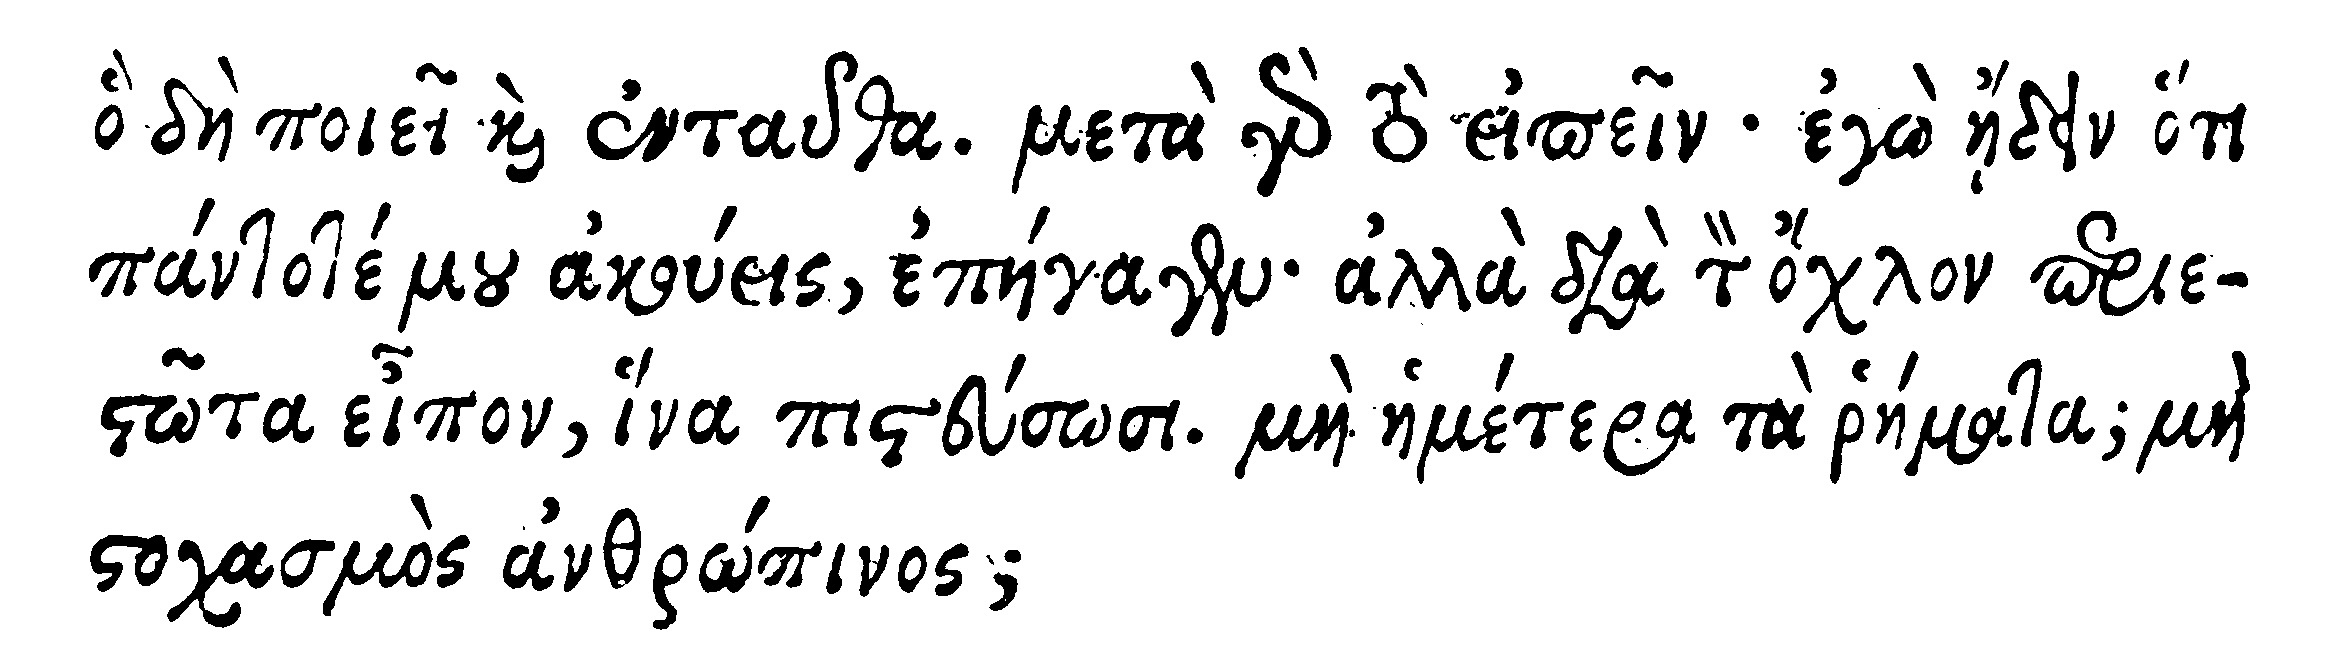 ὃ δὴ ποιεῖ καὶ ἐνταῦθα. μετὰ γὰρ τὸ εἰπεῖν· ἐγὼ ᾔδειν ὅτι
πάντοτέ μου ἀκούεις, ἐπήγαγεν· ἀλλὰ διὰ τὸν ὄχλον περιε-
στῶτα εἶπον, ἵνα πιστεύσωσι. μὴ ἡμέτερα τὰ ῥήματα; μὴ
στοχασμὸς ἀνθρώπινος;